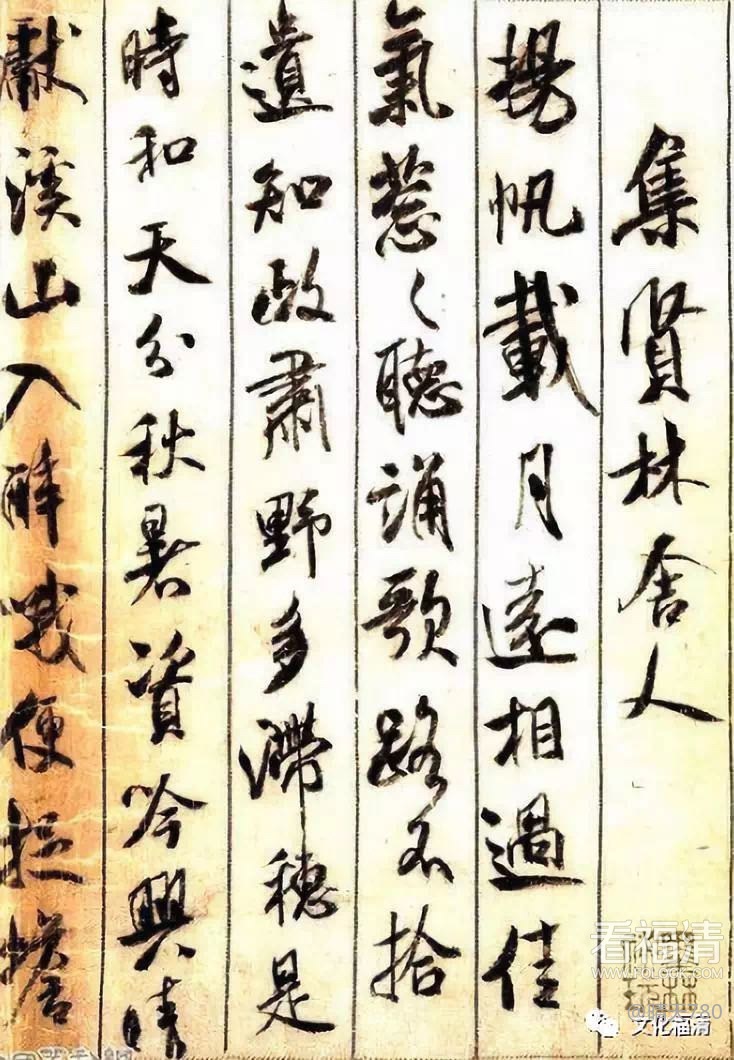 集賢林舍人
揚帆載月遠相過佳
氣葱々聽誦歌路不拾
遺知政肅野多滯穗是
時和天分秋暑資吟興晴
獻溪山入醉哦便捉蟾
看福清
WWW.FOLOOK.COM
文化福清